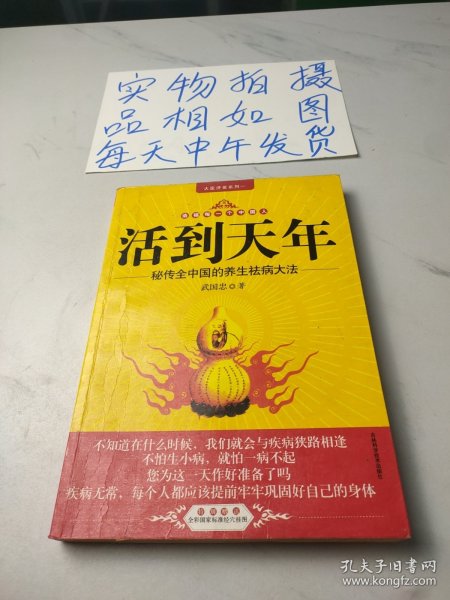 实物拍摄
品相如图
每天中午发货
大医诤言系列一
活到天年
秘传全中国的养生祛病大法
武国忠 著
不知道在什么时候，我们就会与疾病狭路相逢
不怕生小病，就怕一病不起
您为这一天作好准备了吗
疾病无常，每个人都应该提前牢牢巩固好自己的身体
全彩国家标准经穴挂图
吉林科学技术出版社
孔夫子旧书网
www.kongfz.com